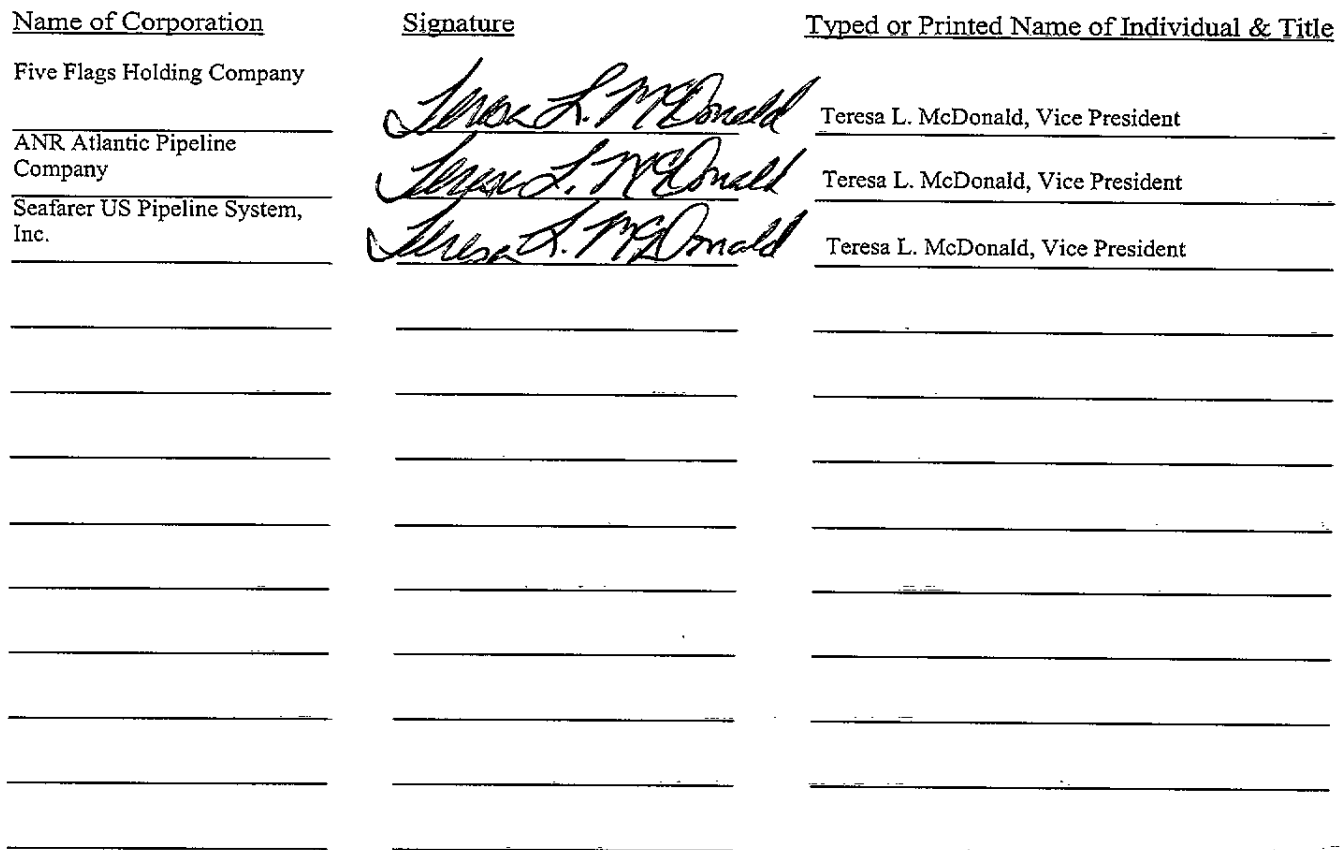 Name of Corporation Signature Typed or Printed Name of Individual & Title
Five Flags Holding Company
Teresa L. McDonald Teresa L. McDonald, Vice President
ANR Atlantic Pipeline
Company
Teresa L. McDonald Teresa L. McDonald, Vice President
Seafarer US Pipeline System,
Inc.
Teresa L. McDonald Teresa L. McDonald, Vice President